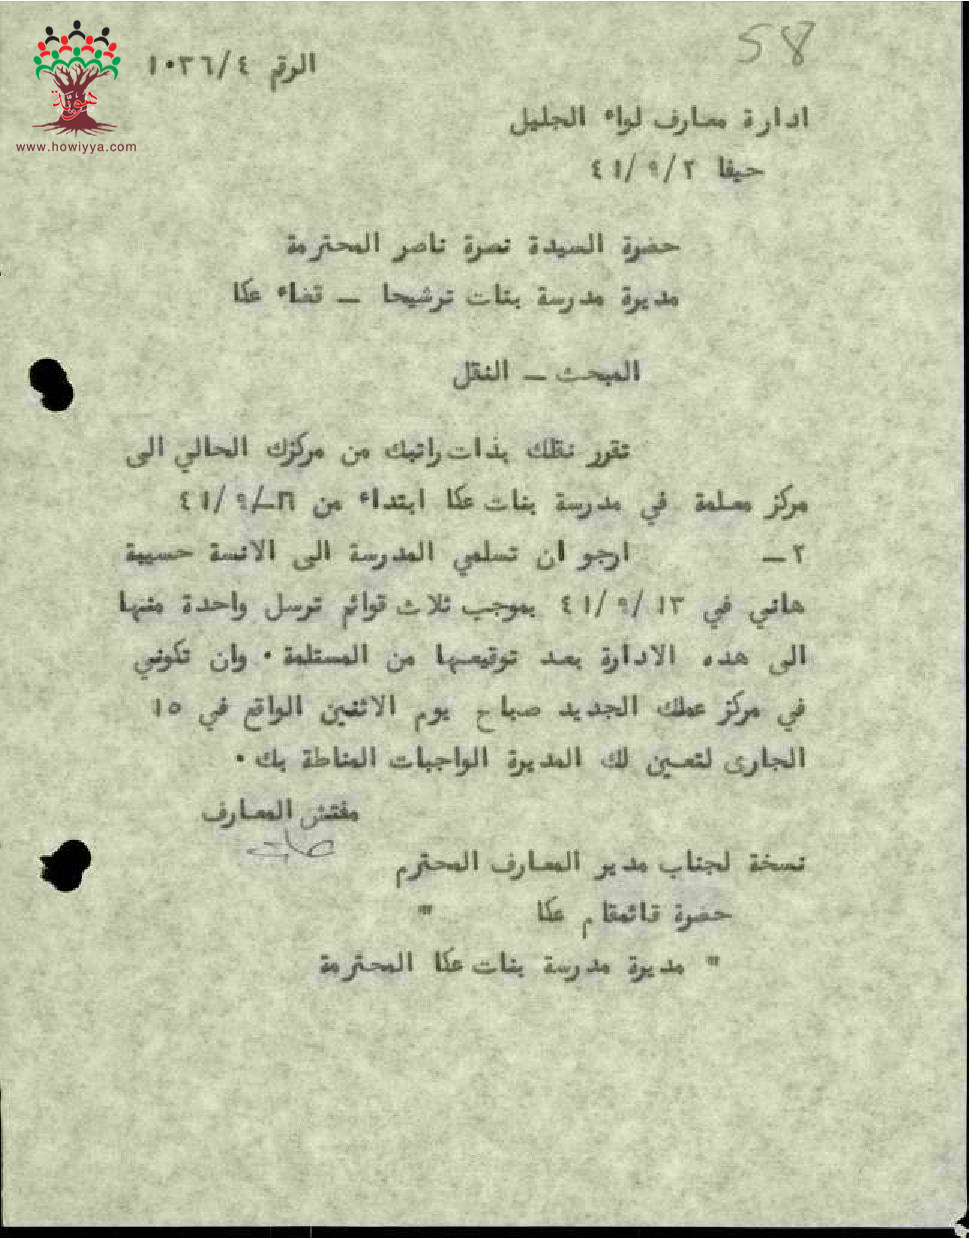 58
هوية
www.howiyya.com
الرقم ١٠٢٦/٤
ادارة معارف لواء الجليل
حيفا ٤١/٩/٢
حضرة السيدة نصرة ناصر المحترمة
مديرة مدرسة بنات ترشيحا – قضاء عكا
المبحث – النقل
تقرر نقلك بذات راتبك من مركزك الحالي الى
مركز معلمة في مدرسة بنات عكا ابتداء من ٤١/٩/
٢– ارجو ان تسلمي المدرسة الى الانسة حسيبة
هاني في ٤١/٩/١٣ بموجب ثلاث قوائم ترسل واحدة منها
الى هذه الادارة بعد توقيعها من المستلمة ٠ وان تكوني
في مركز عملك الجديد صباح يوم الاثنين الواقع في ١٥
الجارى لتعين لك المديرة الواجبات المناطة بك ٠
مفتش المعارف
نسخة لجناب مدير المعارف المحترم
حضرة قائمقام عكا "
" مديرة مدرسة بنات عكا المحترمة